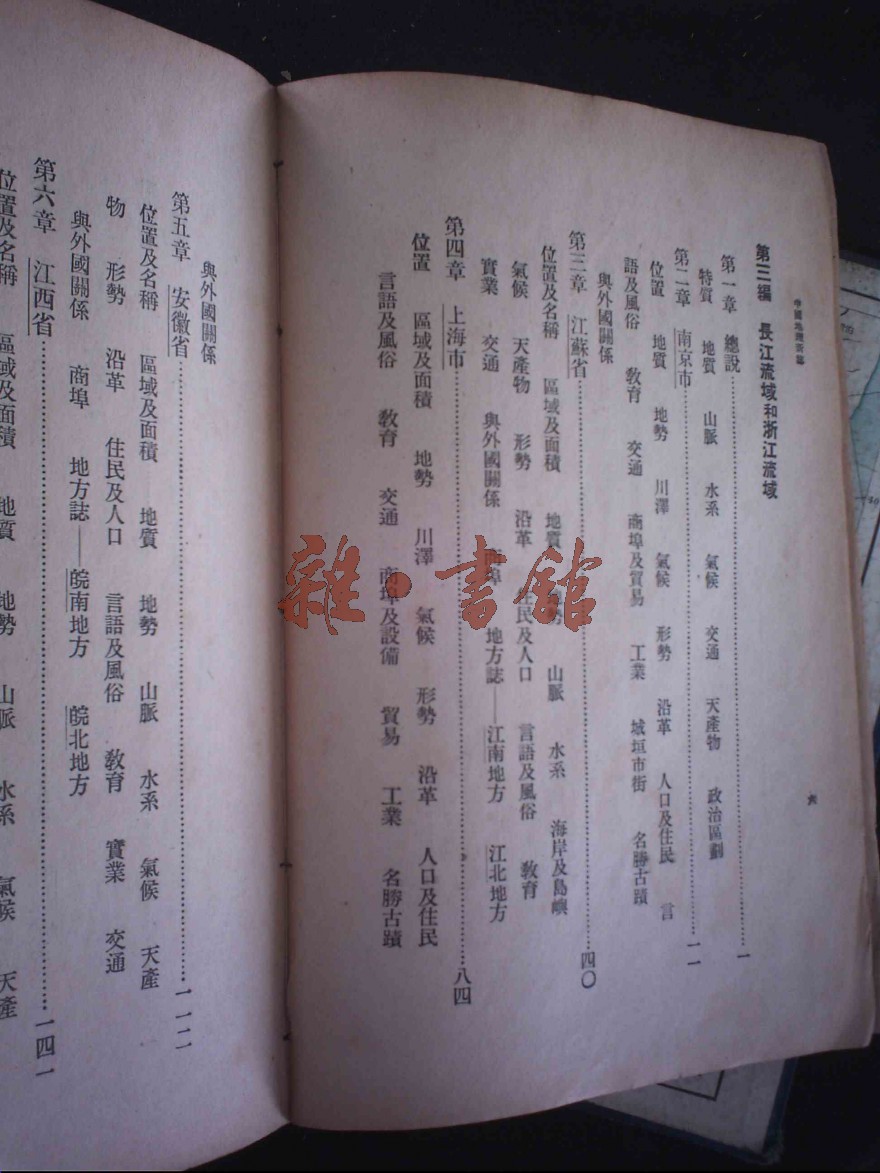 中國地理新誌
六
第三編 長江流域和浙江流域
第一章 總說……一
特質 地質 山脈 水系 氣候 交通 天產物 政治區劃
第二章 南京市……一一
位置 地質 地勢 川澤 氣候 形勢 沿革 人口及住民 言
語及風俗 敎育 交通 商埠及貿易 工業 城垣市街 名勝古蹟
與外國關係
第三章 江蘇省……四〇
位置及名稱 區域及面積 地質 地勢 山脈 水系 海岸及島嶼
氣候 天產物 形勢 沿革 住民及人口 言語及風俗 敎育
實業 交通 與外國關係 商埠 地方誌——江南地方 江北地方
第四章 上海市……八四
位置 區域及面積 地勢 川澤 氣候 形勢 沿革 人口及住民
言語及風俗 敎育 交通 商埠及設備 貿易 工業 名勝古蹟
與外國關係
第五章 安徽省……一一一
位置及名稱 區域及面積 地質 地勢 山脈 水系 氣候 天產
物 形勢 沿革 住民及人口 言語及風俗 敎育 實業 交通
與外國關係 商埠 地方誌——皖南地方 皖北地方
第六章 江西省……一四一
位置及名稱 區域及面積 地質 地勢 山脈 水系 氣候 天產
雜·書館